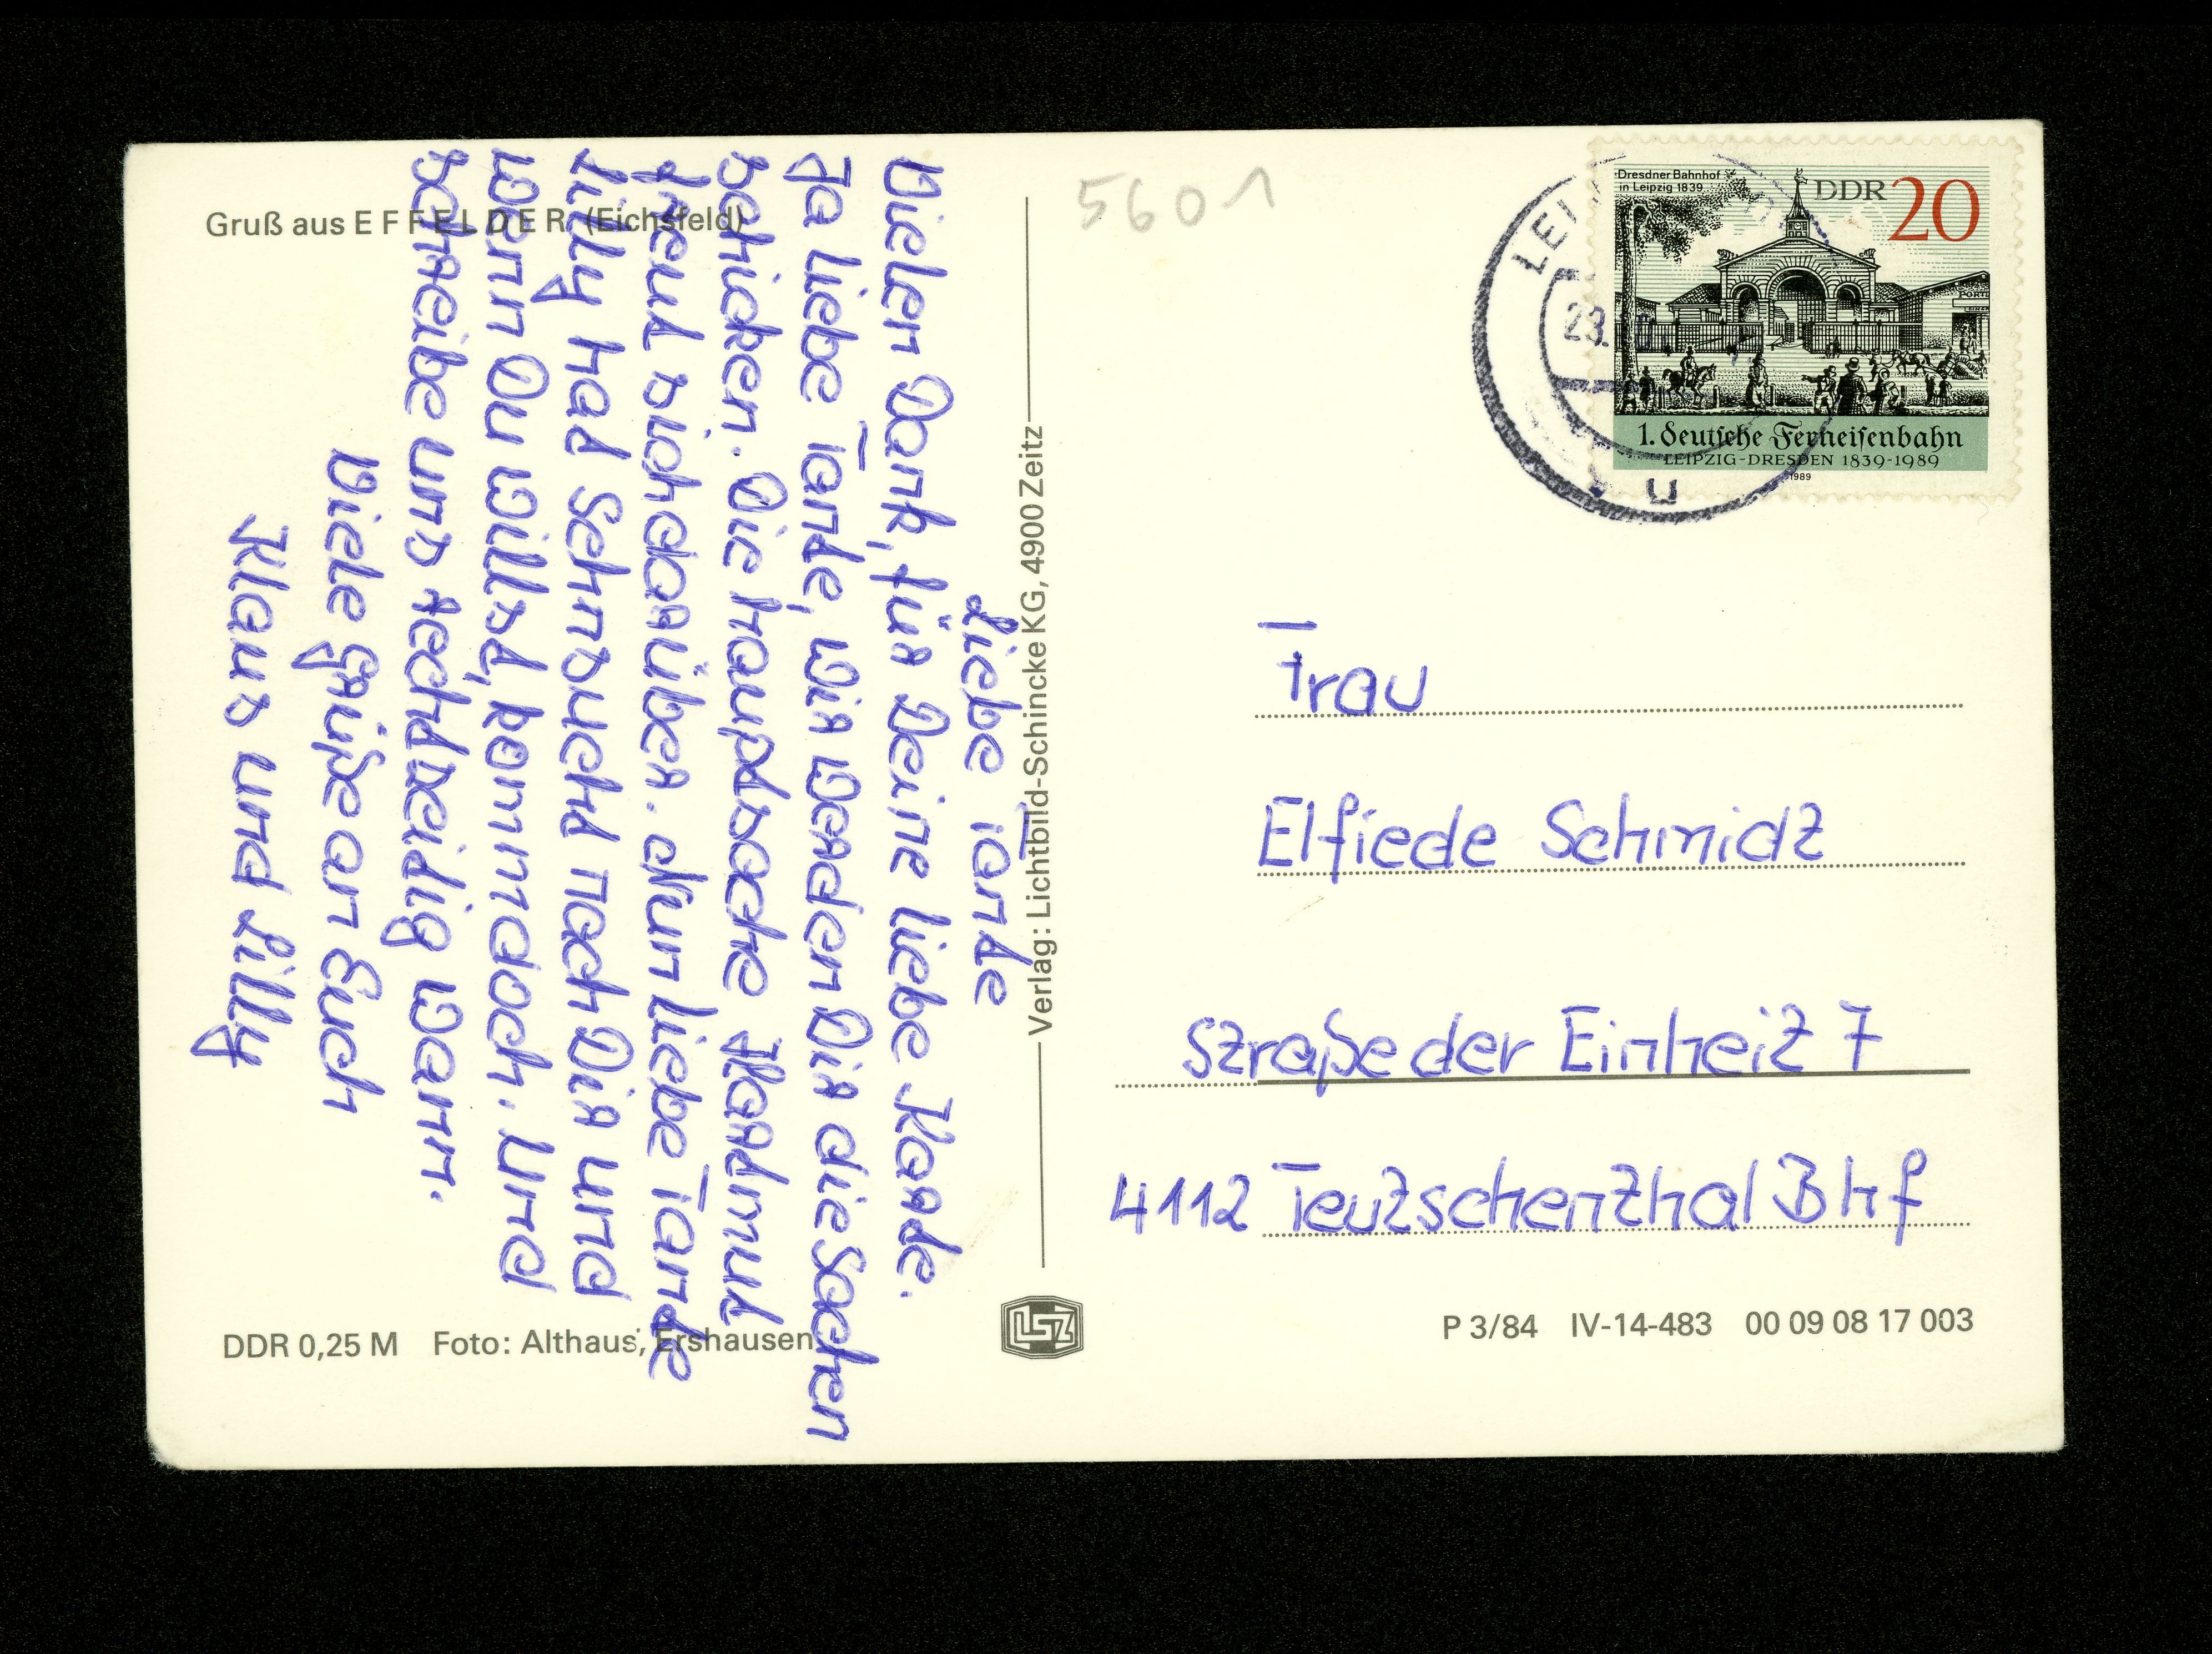 Gruß aus EFFELDER (Eichsfeld)
Liebe Tante
Vielen Dank, für Deine liebe Karte.
Ja liebe Tante, wir werden Dir die Sachen
schicken. Die hauptsache Hartmut
freut sich darüber. Nun liebe Tante
Lilly hat Sehnsucht nach Dir und
wenn Du willst, komm doch. Und
schreibe uns rechtzeitig wann.
Viele Grüße an Euch
Klaus und Lilly
DDR 0,25 M Foto: Althaus, Ershausen
Verlag: Lichtbild-Schincke KG, 4900 Zeitz
LSZ
5601
LEI
23.
u
Dresdner Bahnhof
in Leipzig 1839
DDR 20
1. deutsche Ferneisenbahn
LEIPZIG-DRESDEN 1839-1989
1989
Frau
Elfiede Schmidt
Straße der Einheit 7
4112 Teutschenthal Bhf
P 3/84 IV-14-483 00 09 08 17 003